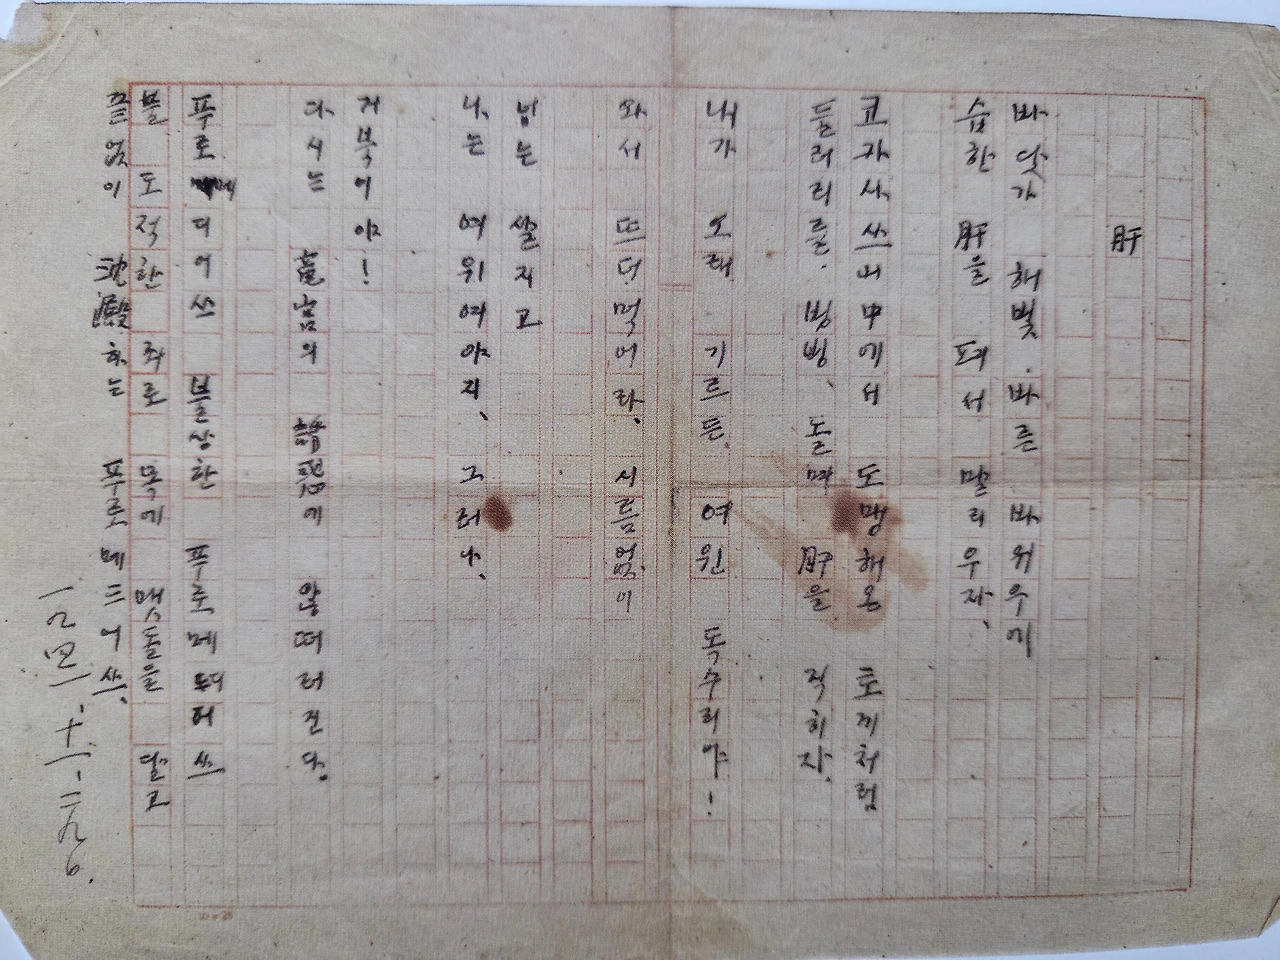 肝
바닷가 해빛 바른 바위우에
습한 肝을 펴서 말리우자、
코카사쓰의中에서 도맹해온 토끼처럼
들러리를 빙빙、 돌며 肝을 직히자。
내가 오래 기르든、 여원 독수리야!
와서 뜨더먹어라、 시름없이
너는 살지고
나는 여위여야지、 그러나、
거북이야!
다시는 龍宮의 誘惑에 않떠러진다。
푸로메디어쓰 불상한 푸로메디어쓰
불 도적한 죄로 목에 맷돌을 달고
끝없이 沈澱하는 푸로메드어쓰、
一九四一、十一、二九、